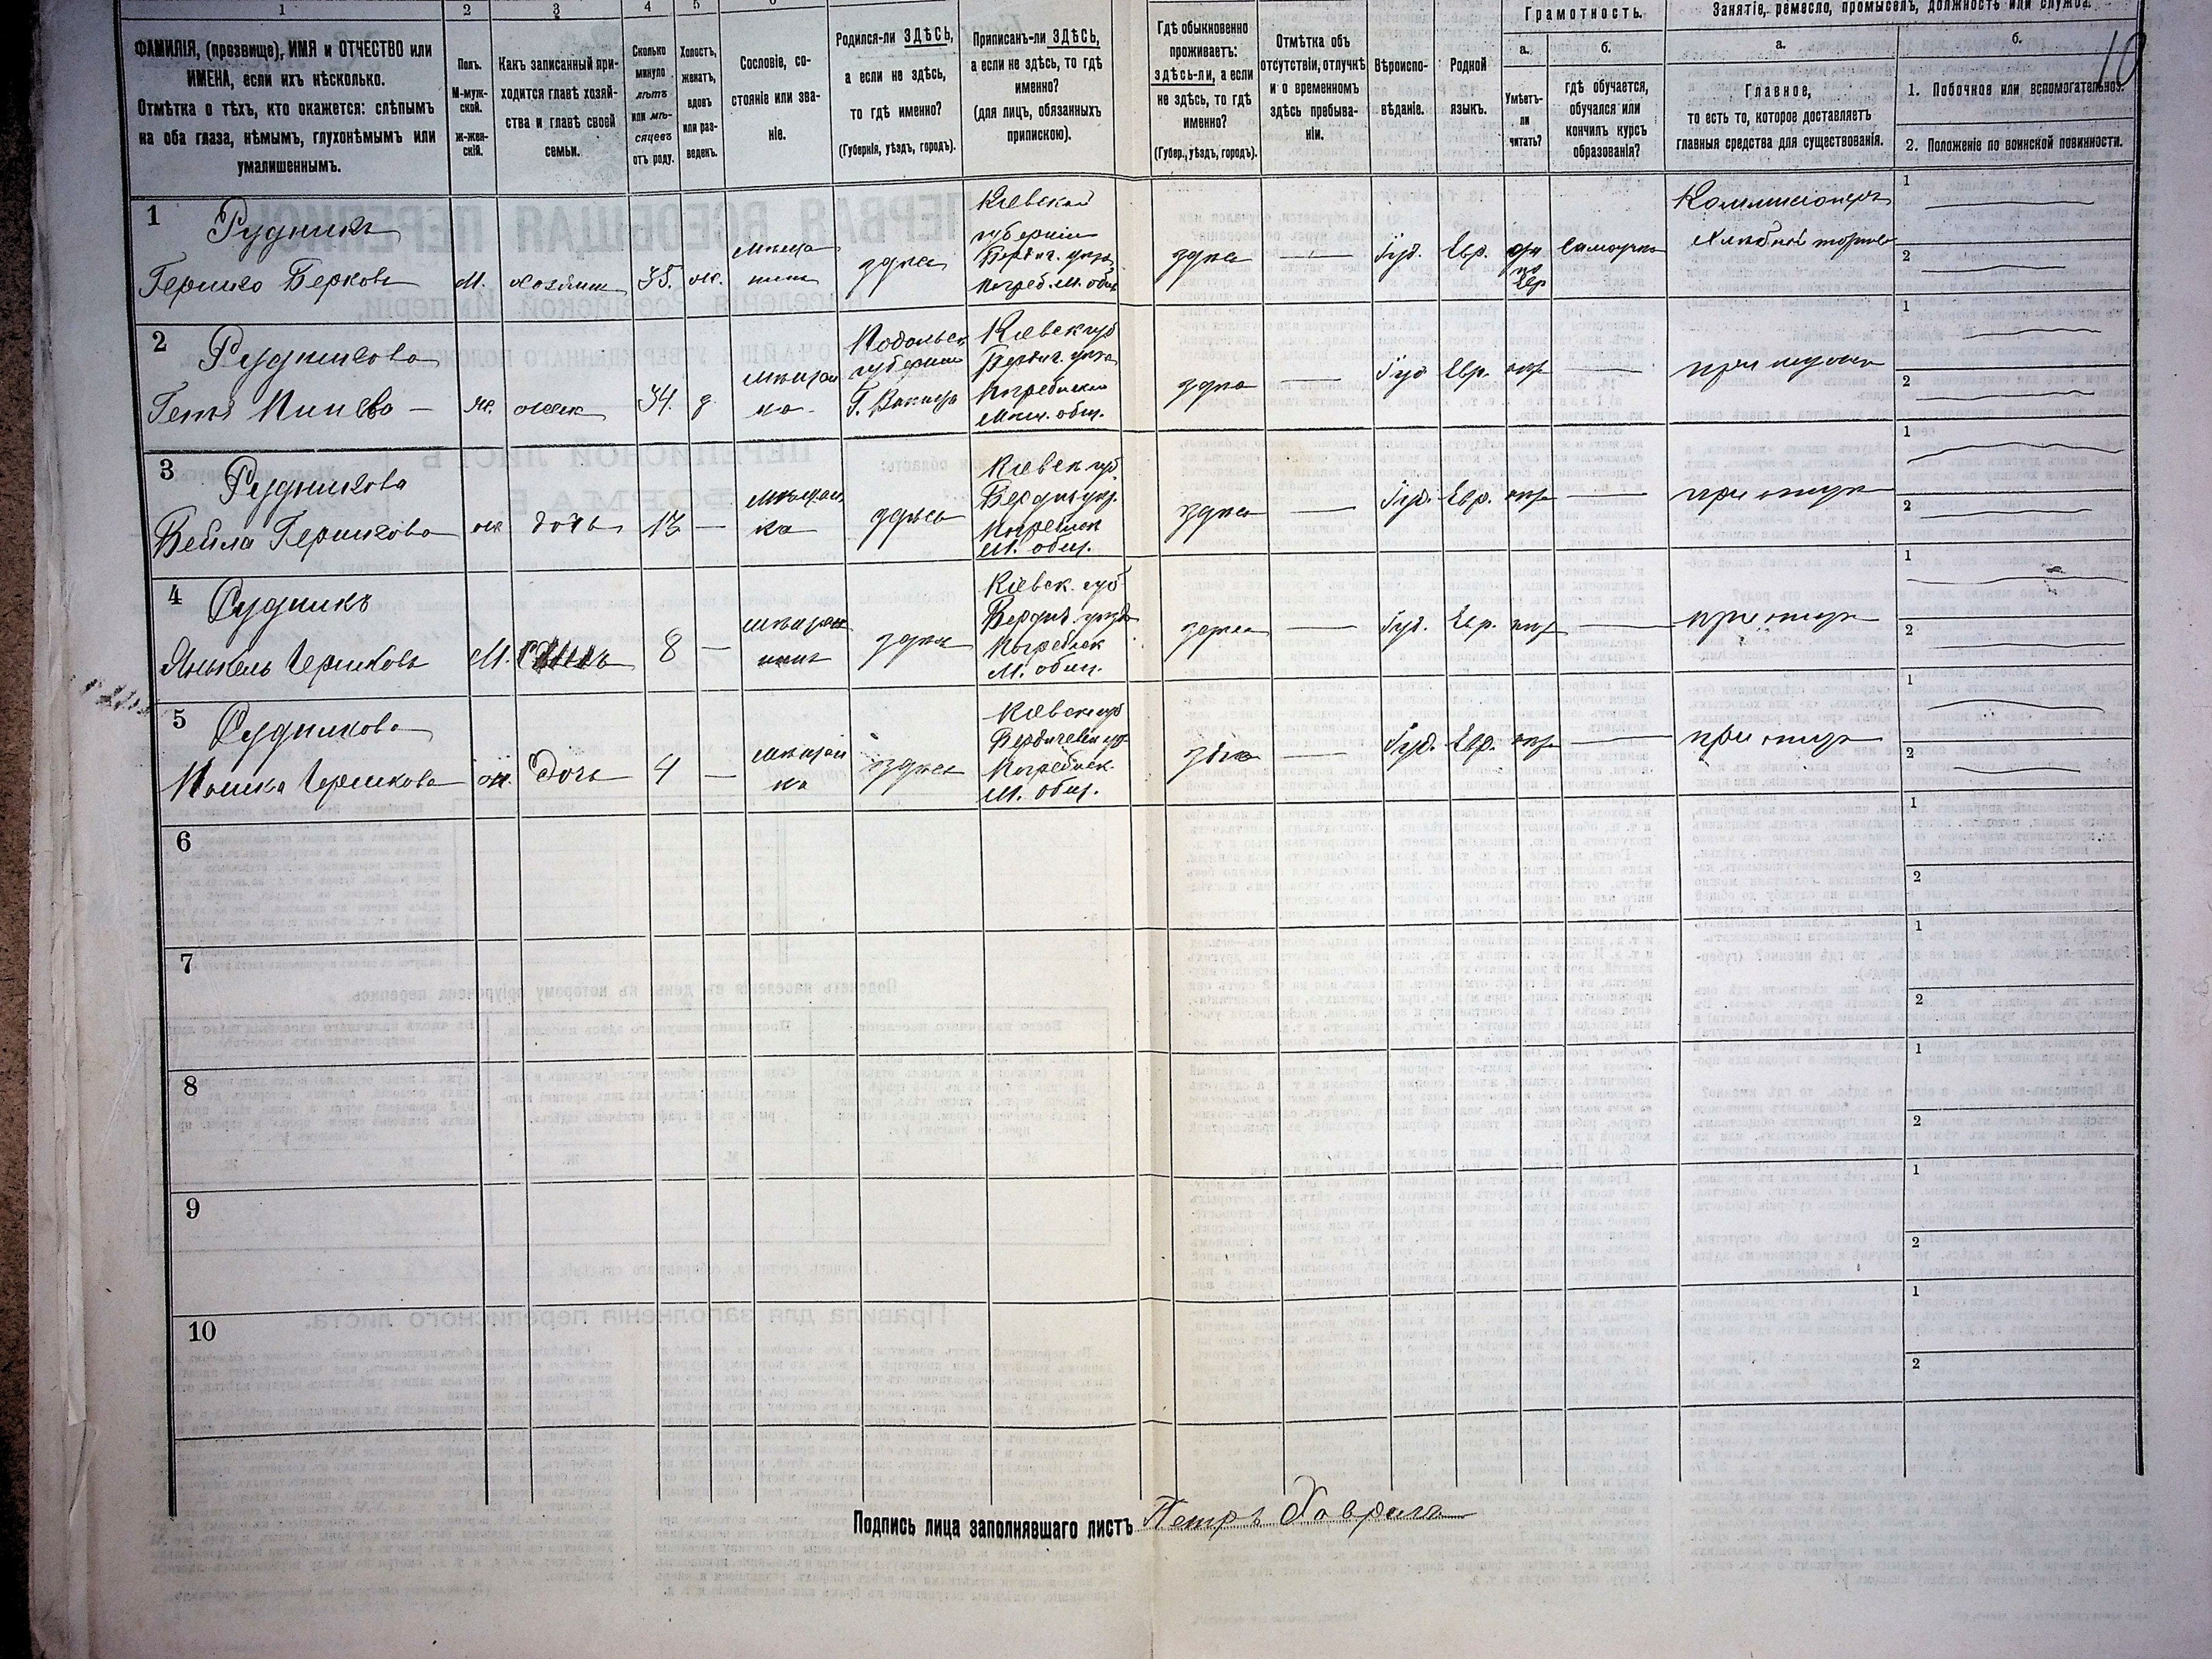 1
2
3
4
5
ФАМИЛІЯ, (прозвище), ИМЯ и ОТЧЕСТВО или
ИМЕНА, если ихъ нѣсколько.
Отмѣтка о тѣхъ, кто окажется: слѣпымъ
на оба глаза, нѣмымъ, глухонѣмымъ или
умалишеннымъ.
Полъ.
М-муж-
ской.
ж-жен-
скій.
Какъ записанный при-
ходится главѣ хозяй-
ства и главѣ своей
семьи.
Сколько
минуло
лѣтъ
или мѣ-
сяцевъ
отъ роду.
Холостъ,
женатъ,
вдовъ
или раз-
веденъ.
Сословіе, со-
стояніе или зва-
ніе.
Родился-ли ЗДѢСЬ,
а если не здѣсь,
то гдѣ именно?
(Губернія, уѣздъ, городъ).
Приписанъ-ли ЗДѢСЬ,
а если не здѣсь, то гдѣ
именно?
(для лицъ, обязанныхъ
припискою).
Гдѣ обыкновенно
проживаетъ:
здѣсь-ли, а если
не здѣсь, то гдѣ
именно?
(Губер., уѣздъ, городъ).
Отмѣтка объ
отсутствіи, отлучкѣ
и о временномъ
здѣсь пребыва-
ніи.
Вѣроиспо-
вѣданіе.
Родной
языкъ.
Грамотность.
а.
Умѣетъ-
ли
читать?
б.
гдѣ обучается,
обучался или
кончилъ курсъ
образованія?
Занятіе, ремесло, промыселъ, должность или служба.
а.
Главное,
то есть то, которое доставляетъ
главныя средства для существованія.
б.
1. Побочное или вспомогательное.
2. Положеніе по воинской повинности.
10
1
Рудникъ
Гершко Берковъ
М.
хозяинъ
35.
ж.
мѣща
нинъ
здѣсь
Кіевской
губерніи
Бердич. уѣзд
Погреб. м. общ
здѣсь
Іуд.
Евр.
да
по
Евр
Самоучка
Коммисіонеръ
хлѣбной торгов
1
2
2
Рудникова
Гетя
ж.
жена
34.
з.
мѣщан
ка
Подольск
губерніи
Г. Винница
Кіевск губ
Бердич. уѣзд
Погребиском
мѣщ. общ.
здѣсь
Іуд
Евр.
нѣт
при мужѣ
1
2
3
Рудникова
Бейла Гершкова
ж
дочь
13
мѣщан
ка
здѣсь
Кіевск губ
Бердич уѣз.
Погребиск
м. общ.
здѣсь
Іуд.
Евр.
нѣт
при отцѣ
1
2
4
Рудникъ
Янкель Гершковъ
М.
Сынъ
8
мѣщан
инъ
здѣсь
Кіевск. губ
Бердич. уѣзд
Погребиск
м. общ.
здѣсь
Іуд.
Евр.
нѣт
при отцѣ
1
2
5
Рудникова
Гершкова
ж.
Дочь
4
мѣщан
ка
здѣсь
Кіевск губ
Бердичевск уѣз
Погребиск.
м. общ.
здѣсь
Іуд.
Евр.
нѣт
при отцѣ
1
2
6
1
2
7
1
2
8
1
2
9
1
2
10
1
2
Подпись лица заполнявшаго листъ Петръ